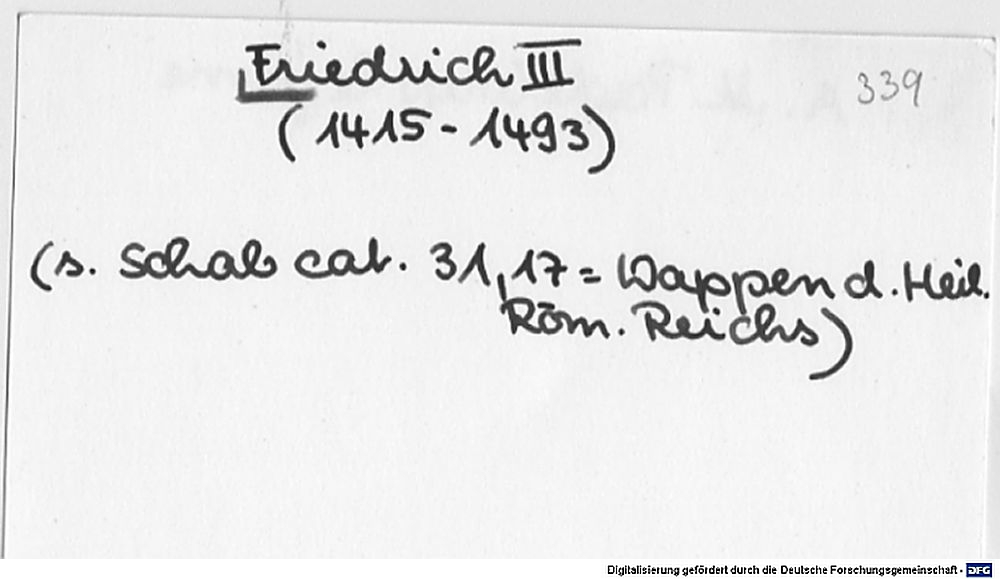 Friedrich III
339
(1415-1493)
(s. Schab cat. 31,17 = Wappen d. Heil.
Röm. Reichs)
Digitalisierung gefördert durch die Deutsche Forschungsgemeinschaft - DFG